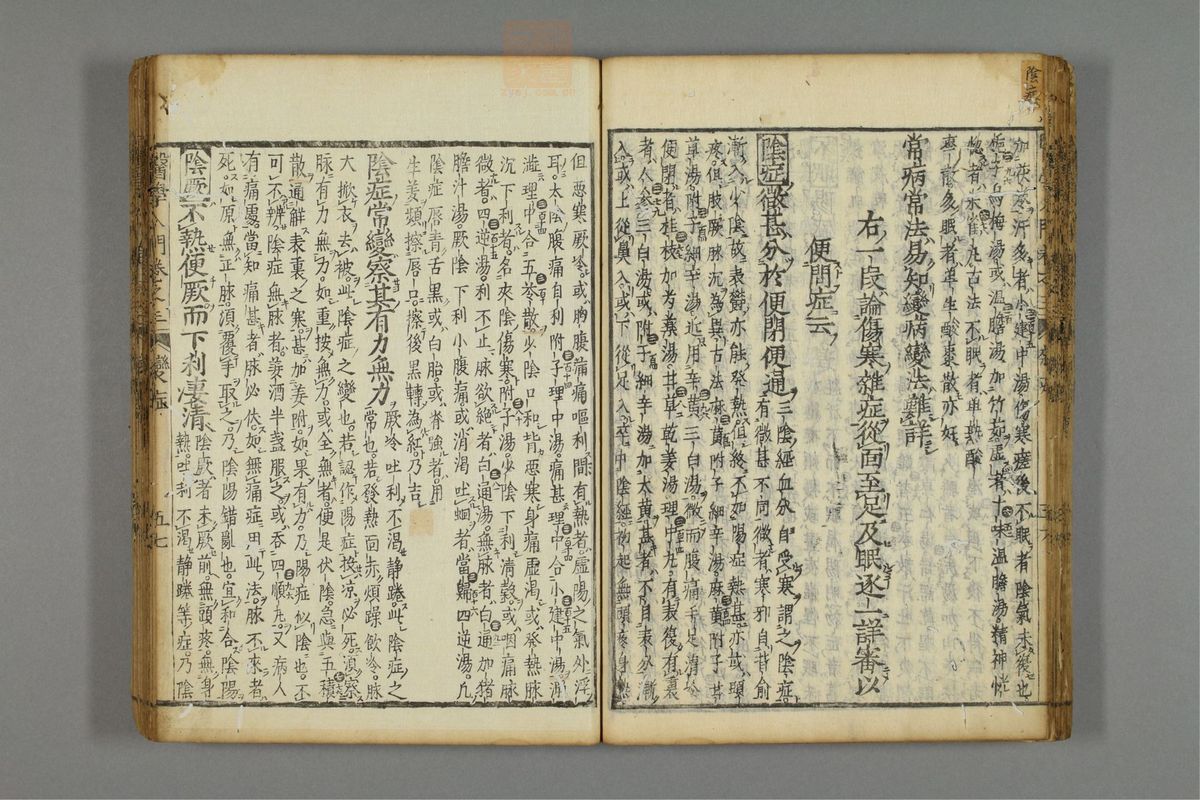 陰症
加茯苓汗多者小建中湯傷寒瘥後不眠者陰氣未復也
梔子烏梅湯或溫膽湯加竹茹虛者十味溫膽湯精神恍
惚者朱雀丸古法不眠者單
棗散多眠者單生酸棗散亦好
常病常法易知變病變法難詳
右一段論傷寒雜症從面至足及眠逐一詳審以
便問症云
陰症微甚分於便閉便通三陰經血分自受寒謂之陰症
有微甚不同微者寒邪自背俞
漸入少陰故表熱亦能發熱但終不如陽症熱甚亦或頭
疼但肢厥脉沉為異古法麻黃附子細辛湯麻黃附子甘
草湯附子細辛湯近用辛黃三白湯微而腹痛手足清冷
便閉者桂枝加芍藥湯甘草乾姜湯理中丸有表復有裏
者人參三白湯或附子細辛湯加大黃甚者不自表分漸
入或上從鼻入或下從足入卒中陰經初起無頭疼身熱
但惡寒厥冷或胸腹痛痛嘔利間有熱者虛陽之氣外浮
耳太陰腹痛自利附子理中湯痛甚理中合小建中湯
澁理中合五苓散少陰口和背惡寒身痛虛渴或發熱脉
沉下利者名夾陰傷寒附子湯少陰下利清穀或咽痛脉
微者四逆湯利不止脉欲絕者白通湯無脉者白通加猪
膽汁湯厥陰下利小腹痛或消渴吐蛔者當歸四逆湯凡
陰症唇青舌黑或白胎或脊強者用
生姜頭擦唇口擦後黑轉為紅乃吉
陰症常變察其有力無力厥冷吐利不渴靜踡此陰症之
常也若發熱面赤煩躁飲冷脉
大揿衣去被此陰症之變也若認作陽症投凉必死須察
脉有力無力如重按無力或全無者便是伏陰急與五積
散通解表裏之寒甚加姜附如果有力乃陽症似陰也不
可不辨陰症無脉者薑酒半盞服之或吞四順丸又病人
有痛處當知痛甚者脉必伏如無痛症用此法脉不來者
死如原無正脉須覆手取之乃陰陽錯亂也宜和合陰陽
陰厥不熱便厥而下利淒清陰厥者未厥前無頭疼無身
熱吐利不渴靜踡等症乃陰
醫學入門 變症 五七